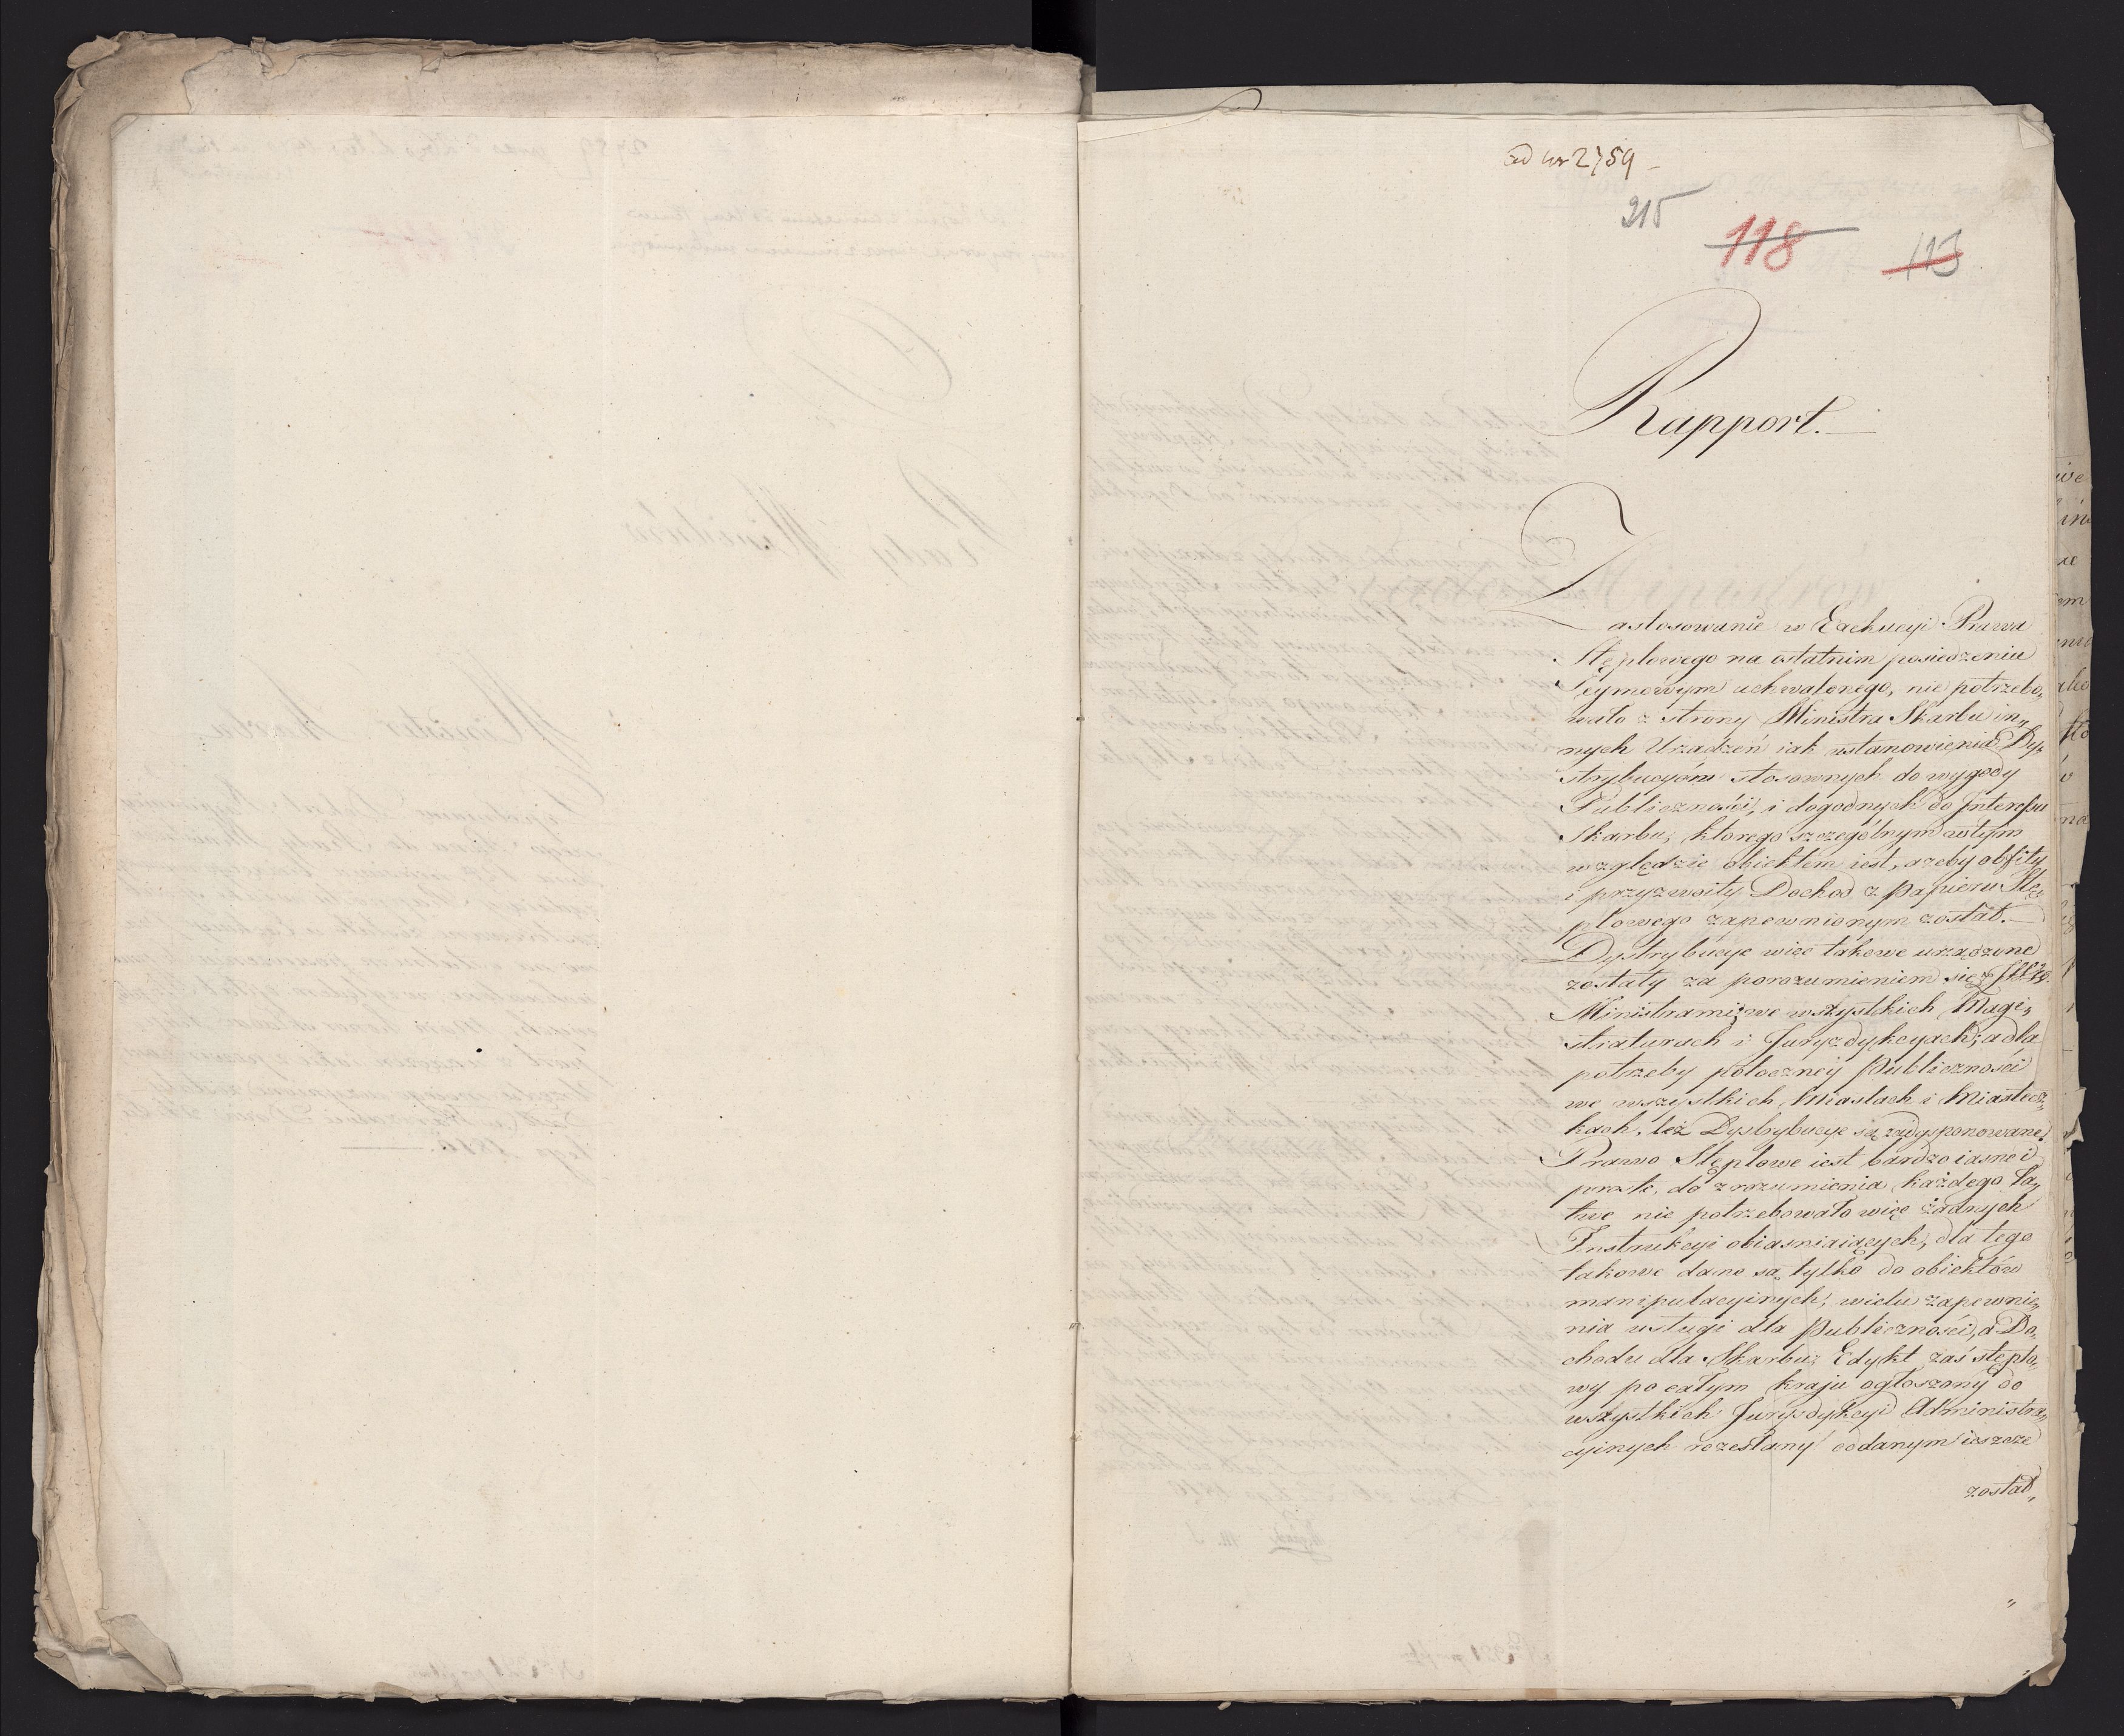 ad nr 2759 —
215
118
113
Rapport. —
Zastosowanie w Exekucyi Prawa
Stęplowego na ostatnim posiedzeniu
Seymowym uchwalonego, nie potrzebo„
wało z strony Ministra Skarbu in„
nych Urządzeń iak ustanowienia Dy„
strybucyóm stosownych do wygody
Publiczności, i dogodnych do Interessu
Skarbu; ktorego szczególnym w tym
względzie obiektem iest, ażeby obfity
i przyzwoity Dochod z papieru Stę„
plowego zapewnionym został. —
Dystrybucye więc takowe urządzone
zostały za porozumieniem się z
Ministrami; we wszystkich Magi„
straturach i Juryzdykcyach; a dla
potrzeby potoczney Publiczności
we wszystkich Miastach i Miastecz„
kach, też Dystrybucye są zadysponowane.
Prawo Stęplowe iest bardzo iasne i
proste, do zrozumienia każdego ła„
twe nie potrzebowało więc żadnych
Instrukcyi obiasniaiących, dla tego
takowe dane są tylko do obiektów
manipulacyinych, w celu zapewnie„
nia usługi dla Publiczności, a Do„
chodu dla Skarbu; Edykt zaś stęplo„
wy po całym kraju ogłoszony do
wszystkich Juryzdykcyi Administra„
cyinych rozesłany oddanym ieszcze
został„